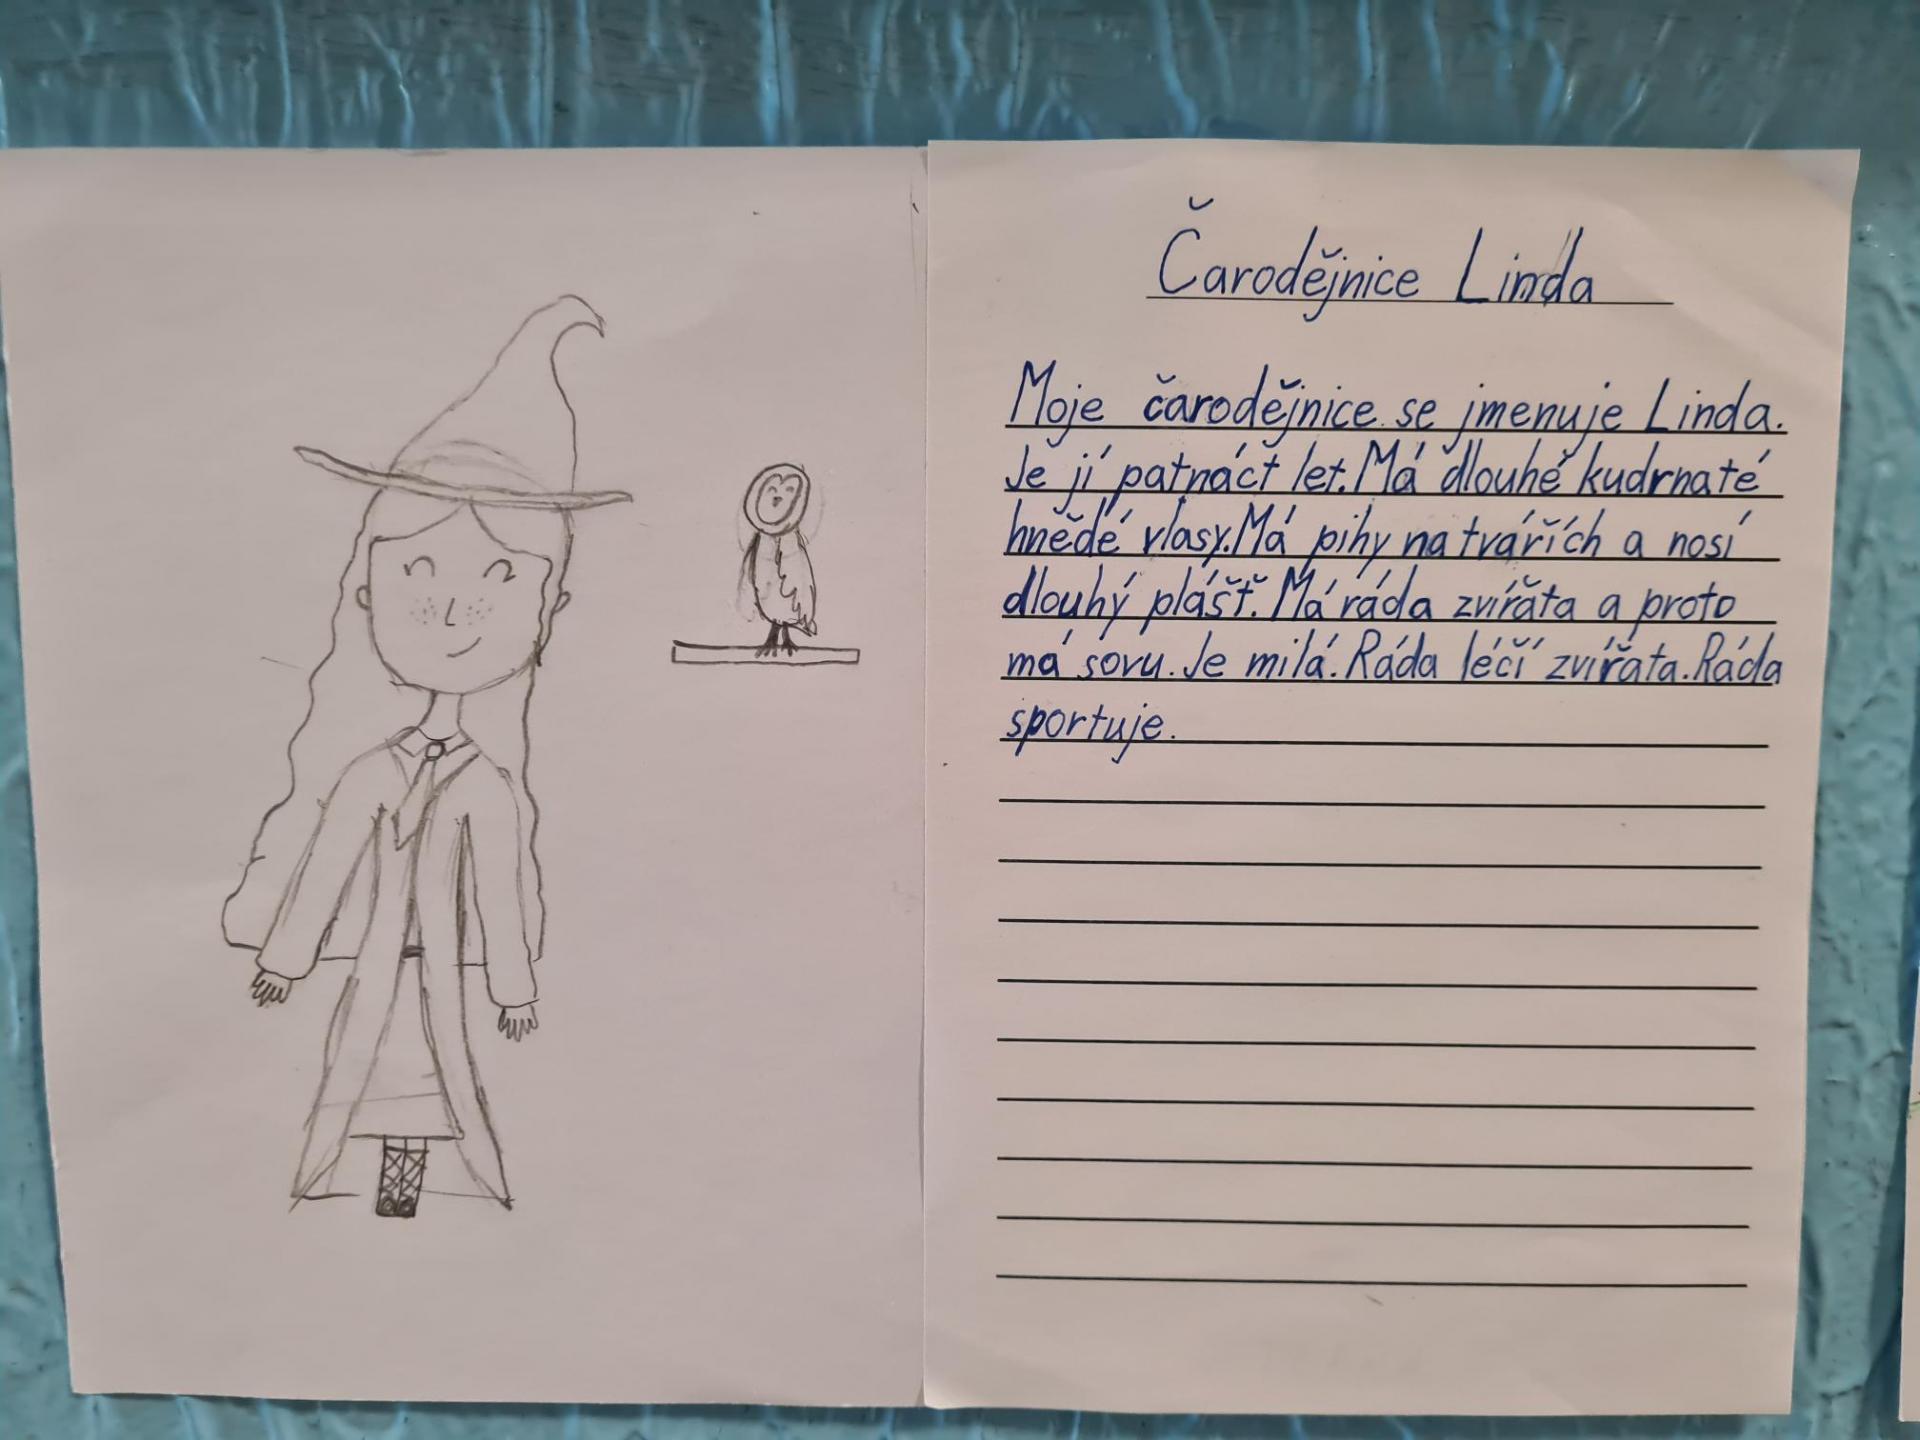 Čarodějnice Linda
Moje čarodějnice se jmenuje Linda.
Je jí patnáct let. Má dlouhé kudrnaté
hnědé vlasy. Má pihy na tvářích a nosí
dlouhý plášť. Má ráda zvířata a proto
má sovu. Je milá. Ráda léčí zvířata. Ráda
sportuje.